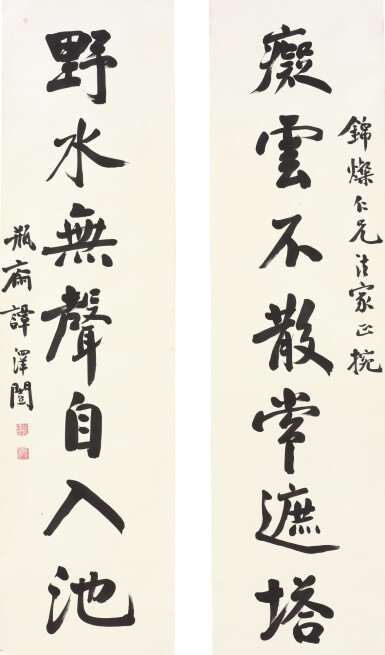 錦燦仁兄法家正捥
癡雲不散常遮塔
野水無聲自入池
瓶齋譚澤闓